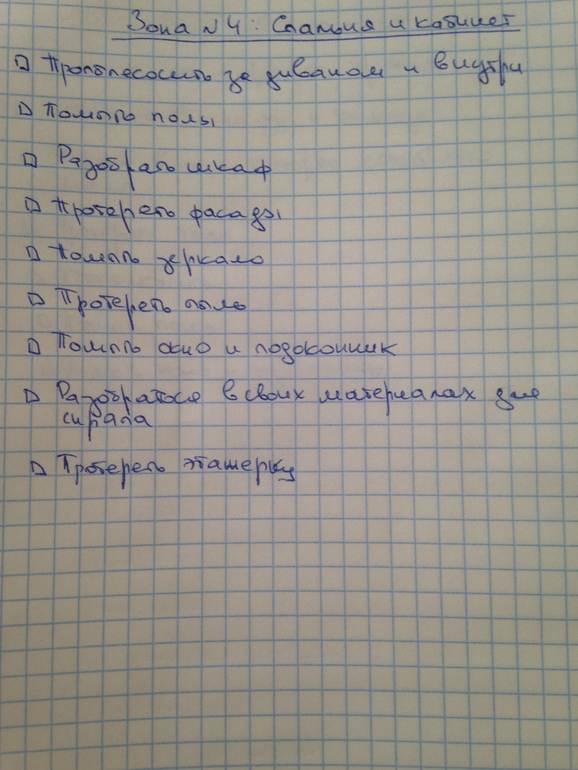 Зона №4: Спальня и кабинет
Пропылесосить за диваном и внутри
Помыть полы
Разобрать шкаф
Протереть фасады
Помыть зеркало
Протереть пыль
Помыть окно и подоконник
Разобраться в своих материалах для
скрапа
Протереть этажерку